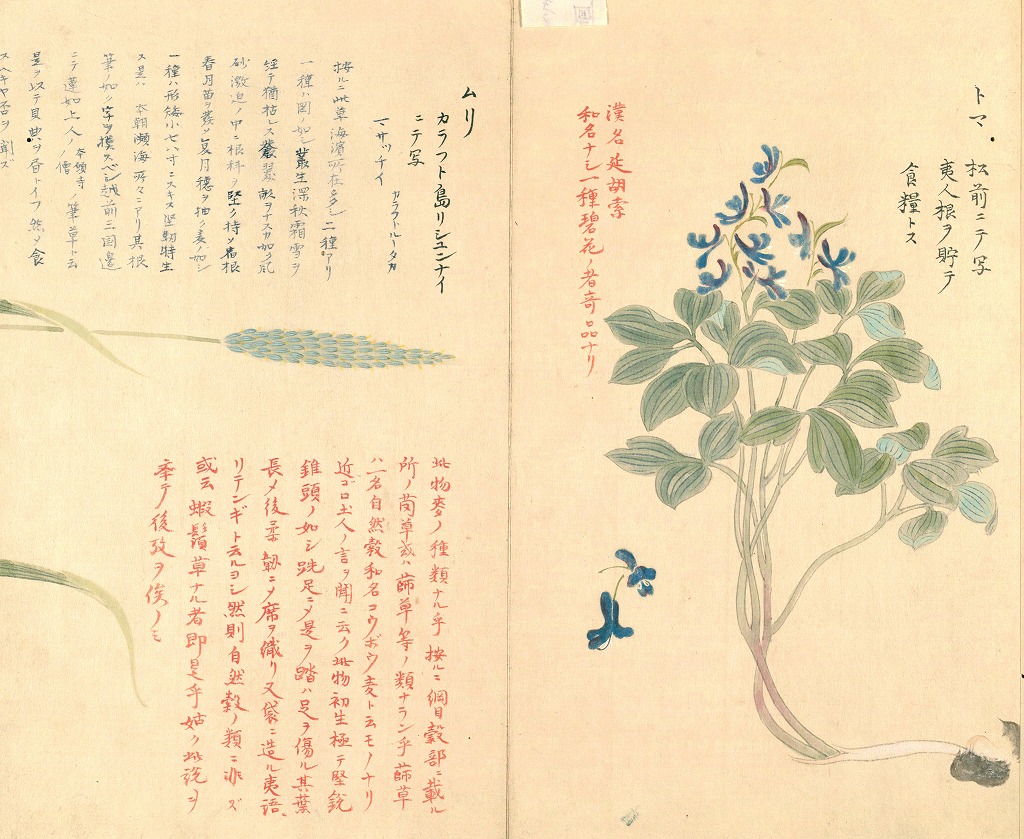 トマ
松前ニテ写
夷人根ヲ貯テ
食糧トス
漢名延胡索
和名ナシ一種碧花ノ者奇品ナリ
ムリ
カラフト島リシユニナイ
ニテ写
カラフトルータカ
マサツチイ
按ルニ此草海濱所在多シ二種アリ
一種ハ図ノ如シ叢生深秋霜雪ヲ
経テ猶枯レス叢翠敵ヲナスカ如ク風
砂激迫ノ中ニ根科ヲ堅ク持ツ宿根
春月苗ヲ發シ夏月穂ヲ抽ク麦ノ如シ
一種ハ形矮小七八寸ニスキス堅韌特生
ス是ハ本朝瀕海所々ニアリ其根
筆ノ如シ字ヲ摸スベシ越前三国邊
ニテ蓮如上人本願寺ノ僧ノ筆草ト云
是ヲ以テ貝典ヲ書トイフ然メ食
スヘキヤ否ヲ聞ズ
此物麥ノ種類ナル乎按ルニ綱目穀部ニ載ル
所ノ䓑草或ハ蒒草等ノ類ナラン乎蒒草
ハ一名自然穀和名コウボウ麦ト云モノナリ
近ゴロ土人ノ言ヲ聞ニ云ク此物初生極テ堅鋭
錐頭ノ如シ跣足ニメ是ヲ踏ハ足ヲ傷ル其葉
長メ後柔韌ニメ席ヲ織リ又袋ニ造ル夷語
リテンギト云ルヨシ然則自然穀ノ類ニ非ズ
或云蝦鬚草ナル者即是乎姑ク此説ヲ
挙テ後攷ヲ俟ノミ